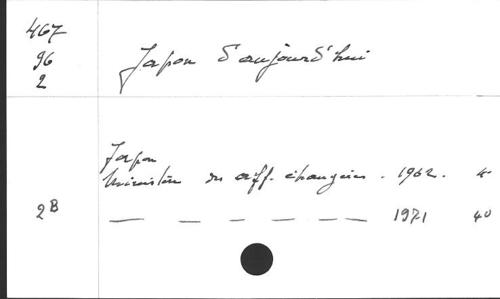 467
96
2
Japon d'aujourd'hui
Japon
Ministère des aff. étrangères. 1962. 4°
2B — — — — — 1971 4°